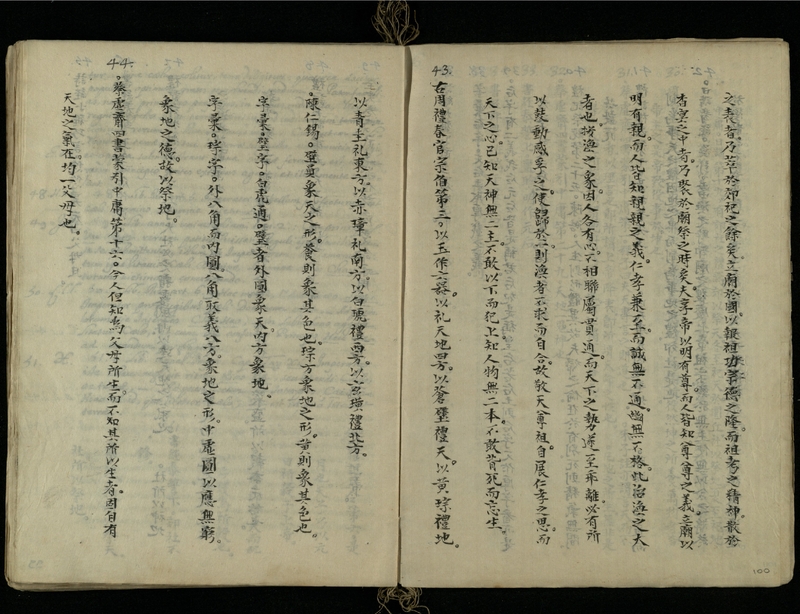 之義者乃萃於郊祀之餘矣立廟於國以報祖功宗德之隆而祖考之精神散於
杳冥之中者乃聚於廟祭之時矣夫享帝以明有尊而人皆知尊尊之義立廟以
明有親而人皆知親親之義仁孝兼至而誠無不通幽無不格此治渙之大
者也按渙之象因人各有心不相聯屬貫通而天下之勢遂至乖離必有所
以鼓動感孚之使歸於一則渙者不求而自合故敬天尊祖自展仁孝之思而
天下之心已知天神無二主不敢以下而犯上知人物無二本不敢背死而忘生
43.
右周禮春官宗伯第三以玉作六器以礼天地四方以蒼璧禮天以黃琮禮地
以青圭礼東方以赤璋礼南方以白琥禮西方以玄璜禮北方
陳仁錫璧員象天之形蒼則象其色也琮方象地之形黃則象其色也
字彙璧字白虎通璧者外圓象天內方象地
字彙琮字外八角而內圓八角取義八方象地之形中虛圓以應無窮
象地之德故以祭地
44.
蔡虛齋四書蒙引中庸第十六今人但知為父母所生而不知其所以生者固自有
天地之氣在均一父母也
100